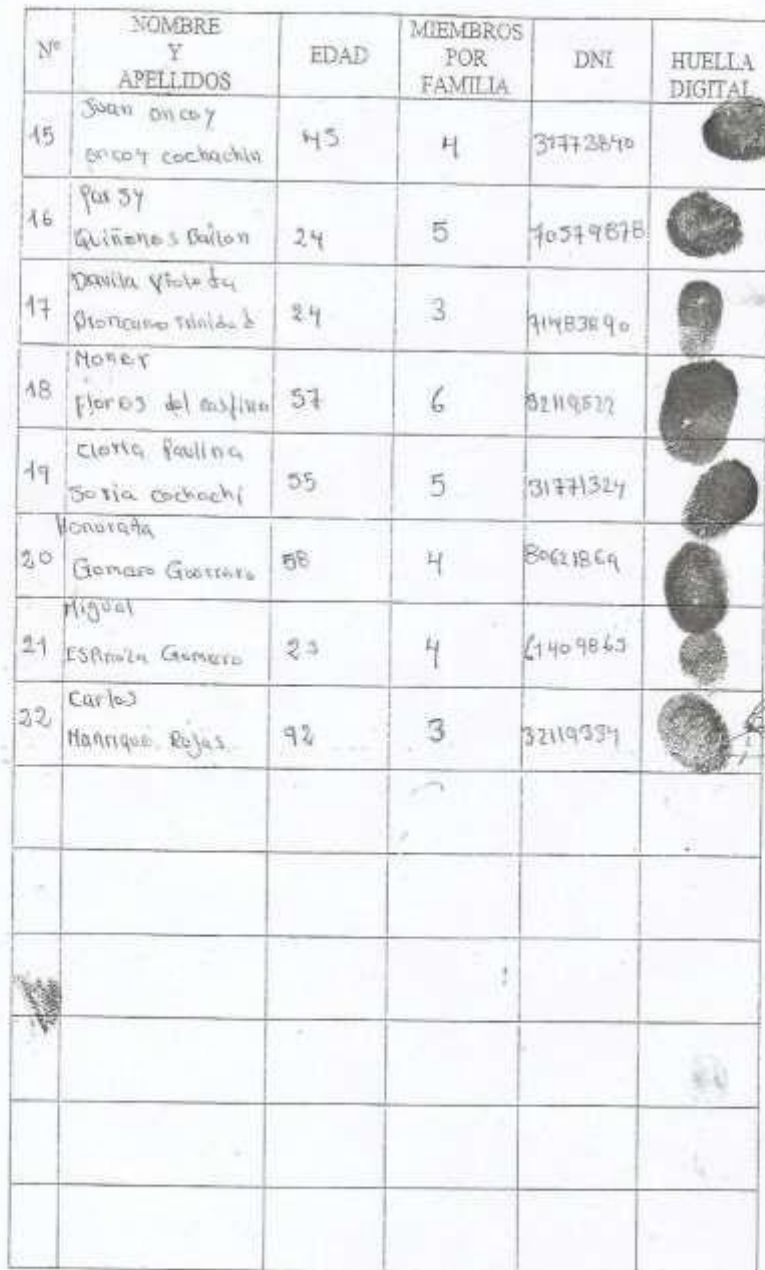 Nº NOMBRE Y APELLIDOS EDAD MIEMBROS POR FAMILIA DNI HUELLA DIGITAL
15 Juan oncoy oncoy cochachin 45 4 31773840
16 Quiñones Bailon 24 5 70579878
17 Davila Violeta 24 3 71483890
18 Moner Flores del 57 6 32119522
19 Gloria Paulina Soria cochachi 55 5 31771324
20 Honorata Gomero Guerrero 58 4 80621869
21 Miguel Espinoza Gomero 23 4 61409865
22 Carlos Manrique Rojas 92 3 32119334